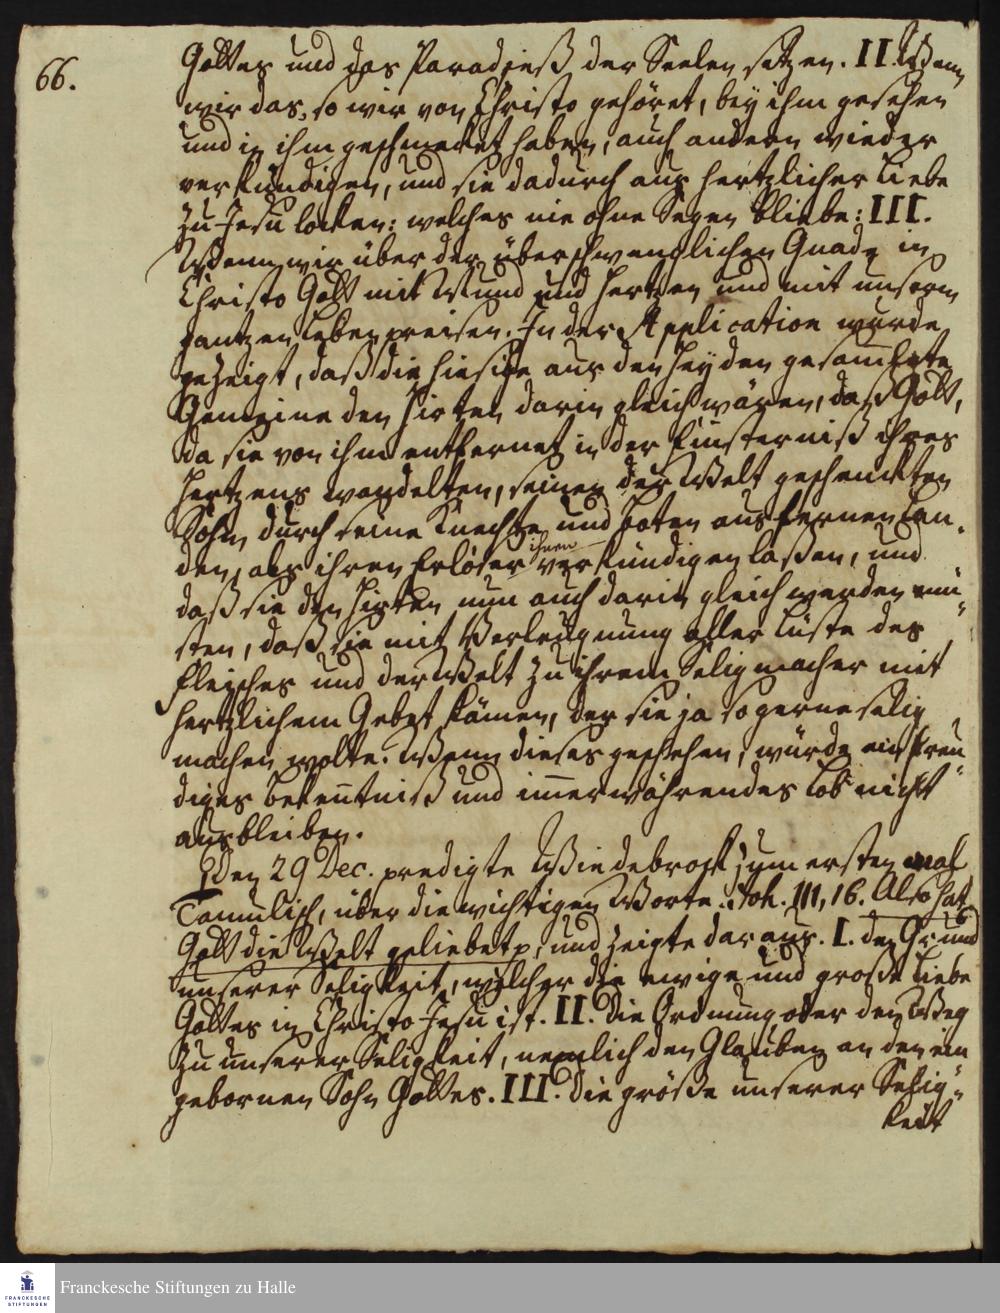 66.
Gottes und das Paradieß der Seelen setzen. II. Wenn
wir das, so wir von Christo gehöret, bey ihm gesehen
und in ihm geschmecket haben, auch andern wieder
verkündigen, und sie dadurch aus hertzlicher Liebe
zu Jesu locken: welches nie ohne Segen bliebe: III.
Wenn wir über der überschwenglichen Gnade in
Christo Gott mit Mund und Hertzen und mit unserm
gantzen Leben preisen. In der Application wurde
gezeigt, daß die hiesige aus den Heyden gesamlete
Gemeine den Hirten darin gleich wären, daß Gott,
da sie von ihm entfernet in der Finsterniß ihres
Hertzens wandelten, seinen der Welt geschenckten
Sohn durch seine Knechte und Boten aus fernen Lan-
den, als ihren Erlöser ihnen verkündigen laßen, und
daß sie den Hirten nun auch darin gleich werden mü-
sten, daß sie mit Verleugnung aller Lüste des
Fleisches und der Welt zu ihrem Seligmacher mit
hertzlichem Gebet kämen, der sie ja so gerne selig
machen wolte. Wenn dieses geschehen, würde ein freu-
diges Bekentniß und imerwährendes Lob nicht
ausbleiben.
Den 29 Dec. predigte Wiedebrock zum ersten mal
Tamulisch, über die wichtigen Worte: Joh. III, 16. Also hat
Gott die Welt geliebet p, und zeigte daraus. I. den Grund
unserer Seligkeit, welcher die ewige und große Liebe
Gottes in Christo Jesu ist. II. Die Ordnung oder den Weg
zu unserer Seligkeit, nemlich den Glauben an den ein
gebornen Sohn Gottes. III. Die größe unserer Selig-
keit
FRANCKESCHE
STIFTUNGEN
Franckesche Stiftungen zu Halle